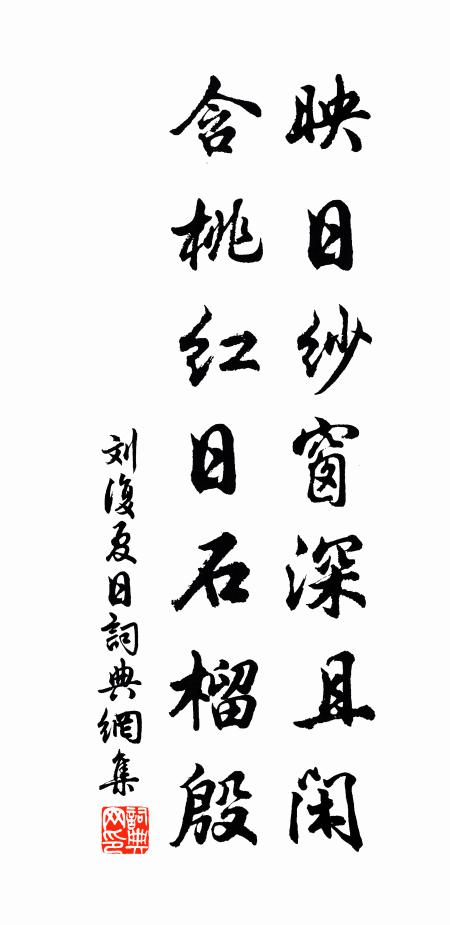 映日纱窗深且闲
含桃红日石榴殷
刘復夏日詞典網集
詞典网印